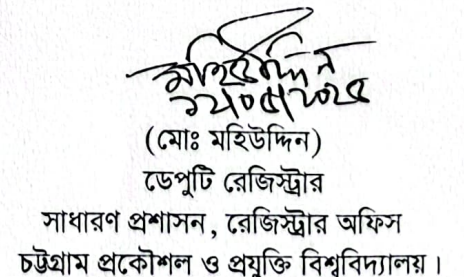 মহিউদ্দিন
১২/০৫/২০২৫
(মোঃ মহিউদ্দিন)
ডেপুটি রেজিস্ট্রার
সাধারণ প্রশাসন, রেজিস্ট্রার অফিস
চট্টগ্রাম প্রকৌশল ও প্রযুক্তি বিশ্ববিদ্যালয়।